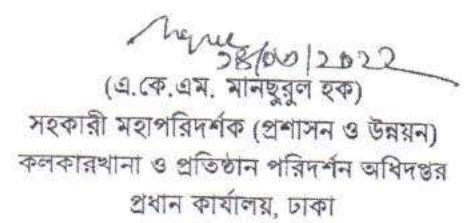 ২৪/০৩/২০২২
(এ.কে.এম. মানছুরুল হক)
সহকারী মহাপরিদর্শক (প্রশাসন ও উন্নয়ন)
কলকারখানা ও প্রতিষ্ঠান পরিদর্শন অধিদপ্তর
প্রধান কার্যালয়, ঢাকা